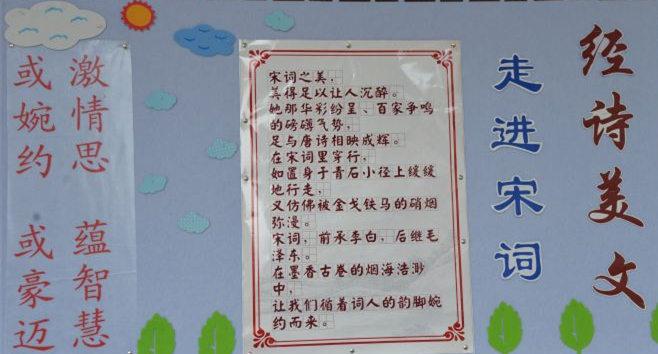 经诗美文
走进宋词
宋词之美，
美得足以让人沉醉。
她那华彩纷呈、百家争鸣
的磅礴气势，
足与唐诗相映成辉。
在宋词里穿行，
如置身于青石小径上缓缓
地行走，
又仿佛被金戈铁马的硝烟
弥漫。
宋词，前承李白，后继毛
泽东。
在墨香古卷的烟海浩渺
中，
让我们循着词人的韵脚婉
约而来。
激情思 蕴智慧
或婉约 或豪迈